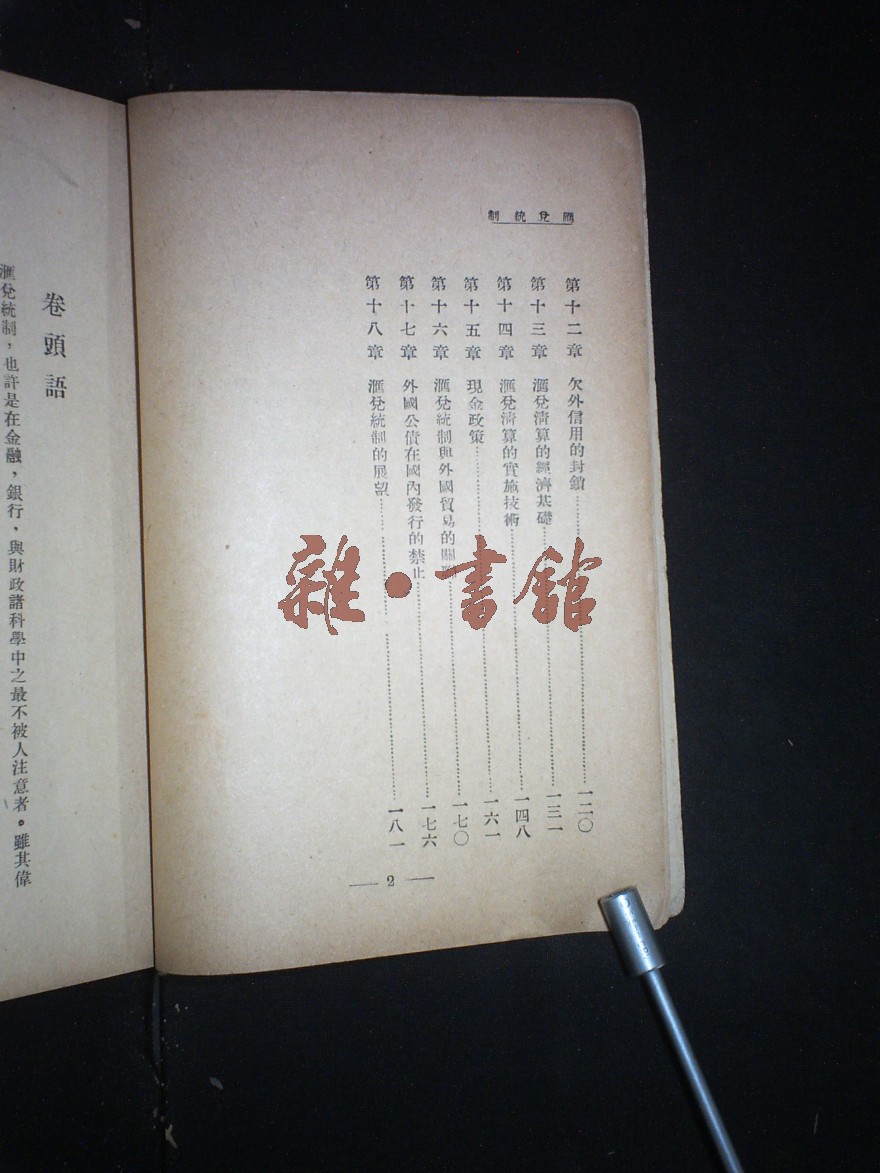 滙兌統制
第十二章 欠外信用的封鎖……一二〇
第十三章 滙兌淸算的經濟基礎……一三一
第十四章 滙兌淸算的實施技術……一四八
第十五章 現金政策……一六一
第十六章 滙兌統制與外國貿易的關……一七〇
第十七章 外國公債在國內發行的禁止……一七六
第十八章 滙兌統制的展望……一八一
— 2 —
雜·書館
卷頭語
滙兌統制，也許是在金融，銀行，與財政諸科學中之最不被人注意者。雖其偉